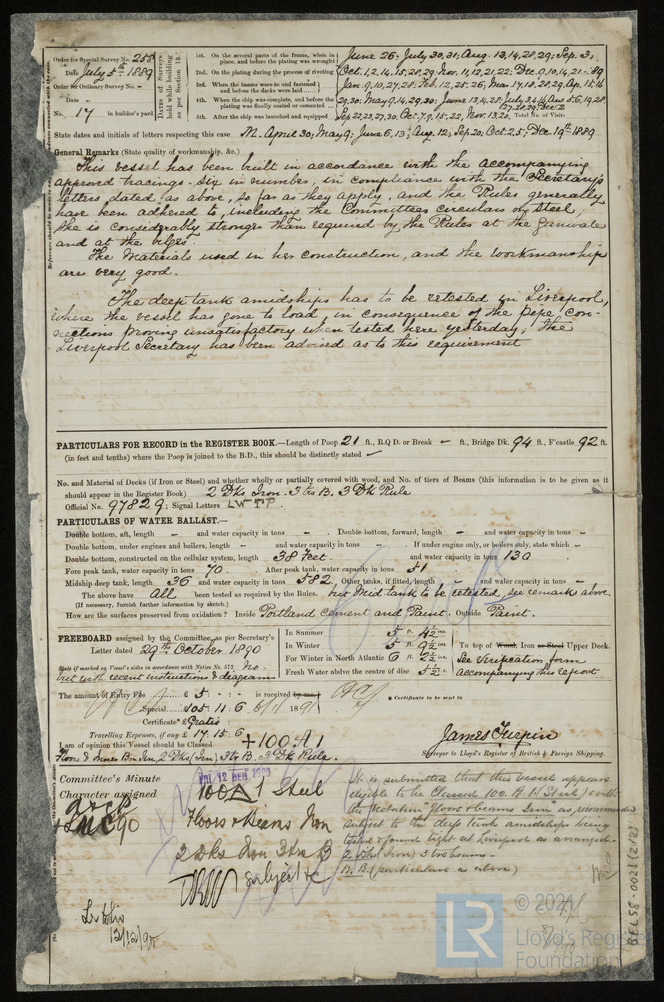 Order for Special Survey No. 258
Date July 5th 1889
Order for Ordinary Survey No. -
Date -
No. 17 in builder's yard
Dates of Surveys held while building as per Section 18.
1st. On the several parts of the frame, when in place, and before the plating was wrought
2nd. On the plating during the process of riveting
3rd. When the beams were in and fastened and before the decks were laid
4th. When the ship was complete, and before the plating was finally coated or cemented
5th. After the ship was launched and equipped
June 26; July 30, 31; Aug. 13, 14, 28, 29; Sep. 3,
Oct. 1, 2, 14, 15, 28, 29. Nov. 11, 12, 21, 22; Dec. 9, 10, 14, 21 - 89
Jan. 9, 10, 27, 28, Feb. 12, 25, 26, Mar. 17, 18, 28, 29, Ap. 15, 16
29, 30; May 9, 14, 29, 30;
Sep. 22, 23, 27, 30, Oct. 7, 9, 15, 22, Nov. 13, 20. Total No. of Visits
State dates and initials of letters respecting this case M. April 30; May 9; June 6, 13; Aug. 12; Sep. 20; Oct. 25; Dec. 19th 1889
General Remarks (State quality of workmanship, &c.)
This vessel has been built in accordance with the accompanying
approved tracings - six in number, in compliance with the Secretary's
letters dated as above, so far as they apply, and the Rules generally
have been adhered to, including the Committees circulars on Steel,
she is considerably stronger than required by the Rules at the gunwale
and at the bilges.
The Materials used in her construction, and the workmanship
are very good.
The deep tank amidships has to be retested in Liverpool,
where the vessel has gone to load, in consequence of the pipe con-
nections proving unsatisfactory when tested here yesterday; the
Liverpool Secretary has been advised as to this requirement
PARTICULARS FOR RECORD in the REGISTER BOOK.—Length of Poop 21 ft., R.Q D. or Break - ft., Bridge Dk. 94 ft., F'castle 92 ft.
(in feet and tenths) where the Poop is joined to the B.D., this should be distinctly stated -
No. and Material of Decks (if Iron or Steel) and whether wholly or partially covered with wood, and No. of tiers of Beams (this information is to be given as it
should appear in the Register Book) 2 Dks Iron. 3 trs B. 3 Dk Rule
Official No. 97829; Signal Letters LWTP
PARTICULARS OF WATER BALLAST.—
Double bottom, aft, length - and water capacity in tons - . Double bottom, forward, length - and water capacity in tons -
Double bottom, under engines and boilers, length - and water capacity in tons - . If under engine only, or boilers only, state which -
Double bottom, constructed on the cellular system, length 38 Feet. and water capacity in tons 130
Fore peak tank, water capacity in tons 70. After peak tank, water capacity in tons 51
Midship deep tank, length 36 and water capacity in tons 582. Other tanks, if fitted, length - and water capacity in tons -
The above have All been tested as required by the Rules. but Mid tank to be retested, see remarks above.
(If necessary, furnish further information by sketch.)
How are the surfaces preserved from oxidation? Inside Portland cement and Paint. Outside Paint.
FREEBOARD assigned by the Committee, as per Secretary's
Letter dated 29th October 1890
State if marked on Vessel's sides in accordance with Notice No. 572 No -
but with recent instructions & diagrams
In Summer 5 ft. 4½ ins.
In Winter 5 ft. 9½ ins.
For Winter in North Atlantic 6 ft. 2½ ins.
Fresh Water above the centre of disc 5½ ins.
To top of Wood, Iron or Steel Upper Deck.
See verification form
accompanying this report
The amount of Entry Fee £ 5 : - : - is received by me,
Special 105 . 11 . 6
Certificate* £ Gratis :
Travelling Expenses, if any £ 17 . 15 . 6
* Certificate to be sent to
I am of opinion this Vessel should be Classed + 100 A 1
Floors & Inner Bm Irn, 2 Dks (Irn) 3 trs B. 3 Dk Rule.
James Turpin
Surveyor to Lloyd's Register of British & Foreign Shipping.
Committee's Minute FRI 12 DEC 1890
Character assigned 100 A 1 Steel
+ LMC 90
Floors & Beams Iron
2 Dks Iron 3 trs B
subject &c
It is submitted that this vessel appears
eligible to be Classed 100 A 1 (Steel) with
the notation "floors & beams Iron" as recommended
subject to the deep tank amidships being
tested & found tight at Liverpool as arranged.
2 Dks (Iron) 3 trs beams -
W.B. (particulars as above)
12/12/90
BELSS-0021 (2/2)
LR
© 2021
Lloyd's Register
Foundation